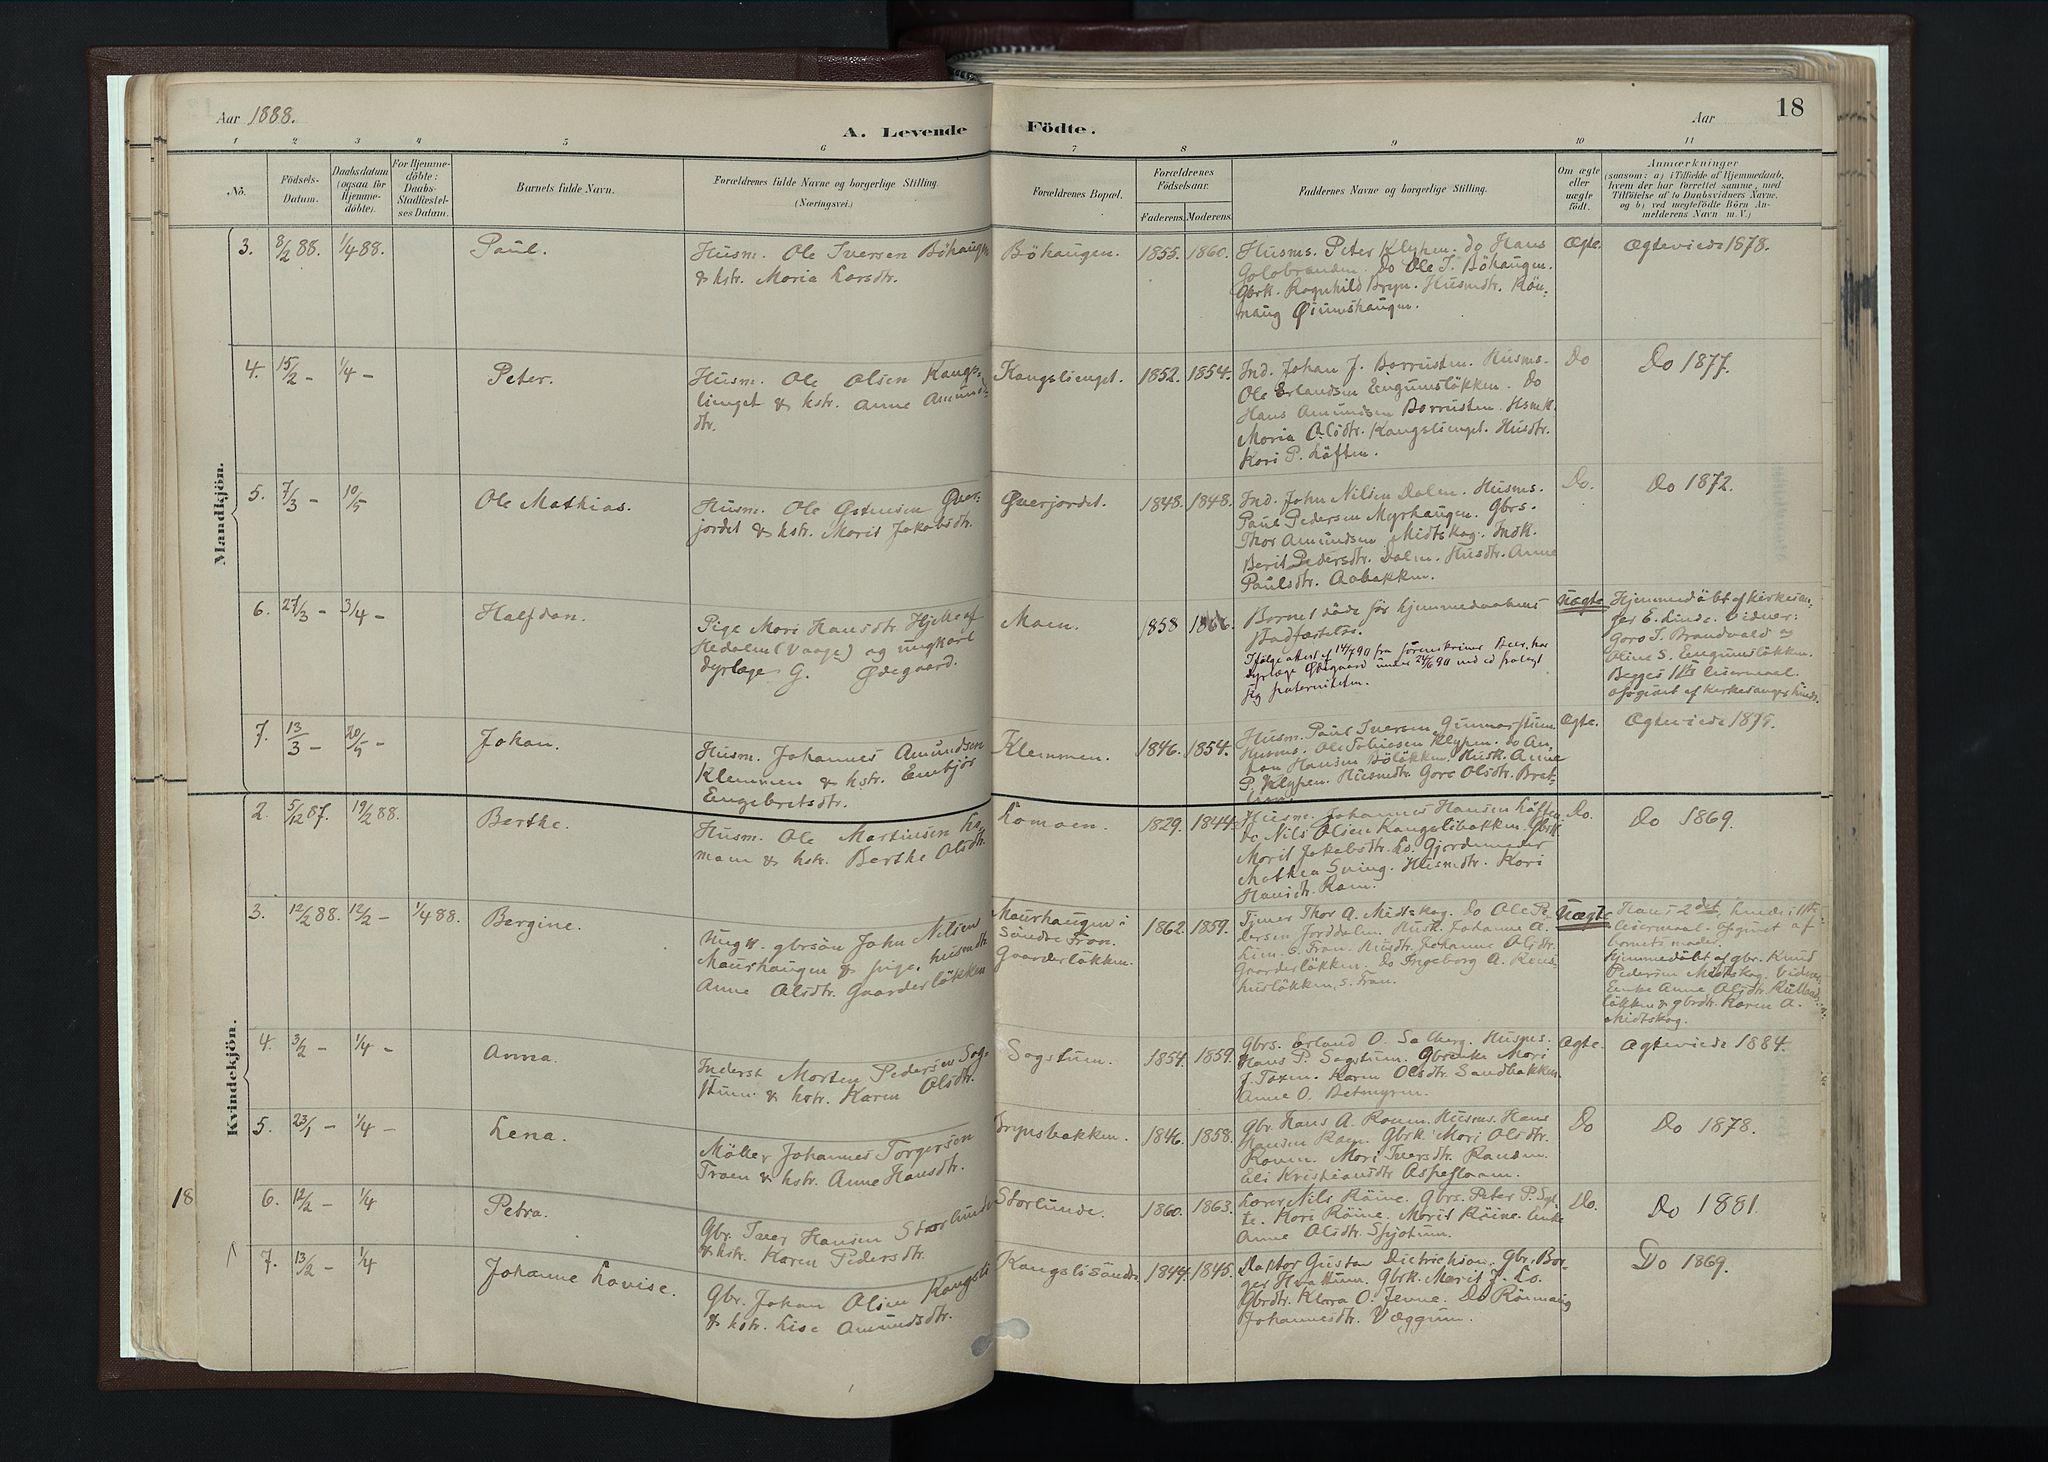 Aar 1888.
A. Levende Födte.
Aar
18
1 2 3 4 5 6 7 8 9 10 11
No.
Födsels-Datum.
Daabsdatum (ogsaa for Hjemme-döbte).
For Hjemme-döbte: Daabs-Stadfæstel-ses Datum.
Barnets fulde Navn.
Forældrenes fulde Navne og borgerlige Stilling.
(Næringsvei.)
Forældrenes Bopæl.
Forældrenes Födselsaar.
Faderens. Moderens.
Faddernes Navne og borgerlige Stilling.
Om ægte eller uægte födt.
Anmærkninger
(saasom: a) i Tilfælde af Hjemmedaab, hvem der har forrettet samme, med Tilföielse af to Daabsvidners Navne, og b) ved uægtefödte Börn Anmelderens Navn m. V.)
Mandkjön.
3. 8/2 88. 1/4 88. Paul.
Husm. Ole Iversen Böhaugen
& kstr. Maria Larsdtr.
Böhaugen. 1855. 1860.
Husms. Peter Klypen. do Hans
Do Ole I. Böhaugen.
Gbrk. Ragnhild Bryn. Husmdtr. Rön-
naug
Ægte. Ægteviede 1878.
4. 15/2 – 1/4 – Peter.
Husm. Ole Olsen Kangs-
lienget & kstr. Anne Amunds-
dtr.
Kangslienget. 1852. 1854.
Ind. Johan J. Borrusten. Husms.
Ole Erlandsen Engumslökken. Do
Hans Amundsen Borrusten. Hsmk.
Maria Olsdtr. Kangslienget. Husdtr.
Kari P. Löften.
Do Do 1877.
5. 7/3 – 10/5 Ole Mathias.
Husm. Ole Östensen Øver-
jordet & kstr. Marit Jakobsdtr.
Øverjordet. 1848. 1848.
Ind. John Nilsen Dalen. Husms.
Paul Pedersen Myrhaugen. Gbrs.
Thor Amundsen Midtskog. Indk.
Berit Pedersdtr. Dalen. Husdtr. Anne
Paulsdtr. Aabakken.
Do. Do 1872.
6. 27/3 – 3/4 – Halfdan.
Pige Mari Hansdtr. Hjelle af
Hedalen (Vaage) og ungkarl
dyrlæge G. Ødegaard.
Moen. 1858 1866.
Barnet döde før hjemmedaabens
stadfæstelse.
Ifølge attest af 14/7 90 fra sorenskriver Beer, har
dyrlæge Ødegaard under 24/6 90 med ed fralagt
sig paterniteten.
Uægte
Hjemmedöbt af kirkesan-
ger E. Linde. Vidner:
Goro T. Brandvold &
Oline S. Engumslökken.
Begges 1ste leiermaal.
opgivet af kirkesanger Linde.
7. 13/3 – 20/5 – Johan.
Husm. Johannes Amundsen
Klemmen & kstr. Embjör
Engebretsdtr.
Klemmen. 1846. 1854.
Husm. Paul Iversen
Husms. Ole Klypen. do
Hansen Husk. Anne
P. Klypen. Husmdtr. Goro Olsdtr.
Ægte. Ægteviede
Kvindekjön.
2. 5/12 87. 19/2 88. Berthe.
Husm. Ole Martinsen Lo-
moen & kstr. Berthe Olsdtr.
Lomoen. 1829. 1844.
Husm. Johannes Hansen Löften
do. Nils Olsen Kangslibakken. Gbrk.
Marit Jakobsdtr. Lo. Gjordemoder
Mathea Sving. Husmdtr. Kari
Hansdtr. Ram.
Do. Do 1869.
3. 12/2 88. 12/2 – 1/4 88. Bergine.
Ungk. gbrsön John Nilsen
Maurhaugen & pige, husmdtr.
Anne Olsdtr. Gaarderlökken
Maurhaugen i
Söndre Fron.
Gaarderlökken.
1862. 1859.
Tjener Thor A. Midtskog. Do Ole Pe-
dersen Jorddalen. Husk. Johanne A.
Lien. S. Fron. Husdtr. Johanne Olsdtr.
Gaarderlökken. Do Ingeborg A.
huslökken, S. Fron.
Uægte
Hans 2det, hendes 1ste
leiermaal. opgivet af
barnets moder.
Hjemmedöbt af gbr. Knud
Pedersen Midtskog. Vidner:
Enke Anne Olsdtr.
lökken & gbrdtr. Karen A.
Midtskog.
4. 3/2 – 1/4 – Anna.
Inderst Morten Pedersen Sog-
stuen & kstr. Karen Olsdtr.
Sogstuen. 1854. 1859.
Gbrs. Erland O. Solberg. Husms.
Hans P. Sogstuen. Gbrenke Mari
J. Toxen. Karen Olsdtr. Sandbakken.
Anne O.
Ægte. Ægteviede 1884.
5. 23/1 – 1/4 – Lena.
Möller Johannes Torgersen
Troen & kstr. Anne Hansdtr.
Brynsbakken. 1846. 1858.
Gbr. Hans A. Ramen. Husms. Hans
Hansen Ram. Gbrk. Mari Olsdtr.
Ramen. Mari Iversdtr. Randen.
Eli Kristiansdtr.
Do Do 1878.
18
6. 12/2 – 1/4 Petra.
Gbr. Iver Hansen Storlunde
& kstr. Karen Pedersdtr.
Storlunde. 1860. 1863.
Lærer Nils Röine. Gbrs. Peter P. Syl-
te. Kari Röine. Marit Röine. Enke
Anne Olsdtr.
Do. Do 1881.
7. 13/2 – 1/4 Johanne Lovise.
Gbr. Johan Olsen Kangsli
& kstr. Lise Amundsdtr.
Kangsli söndre 1844. 1845.
Doktor Gustav Dietrichson. Gbr. Bor-
ger Hvattum. Gbrk. Marit J. Lo.
Gbrdtr. Klara O. Jenne. Do Rönnaug
Johannesdtr. Væggum.
Do 1869.